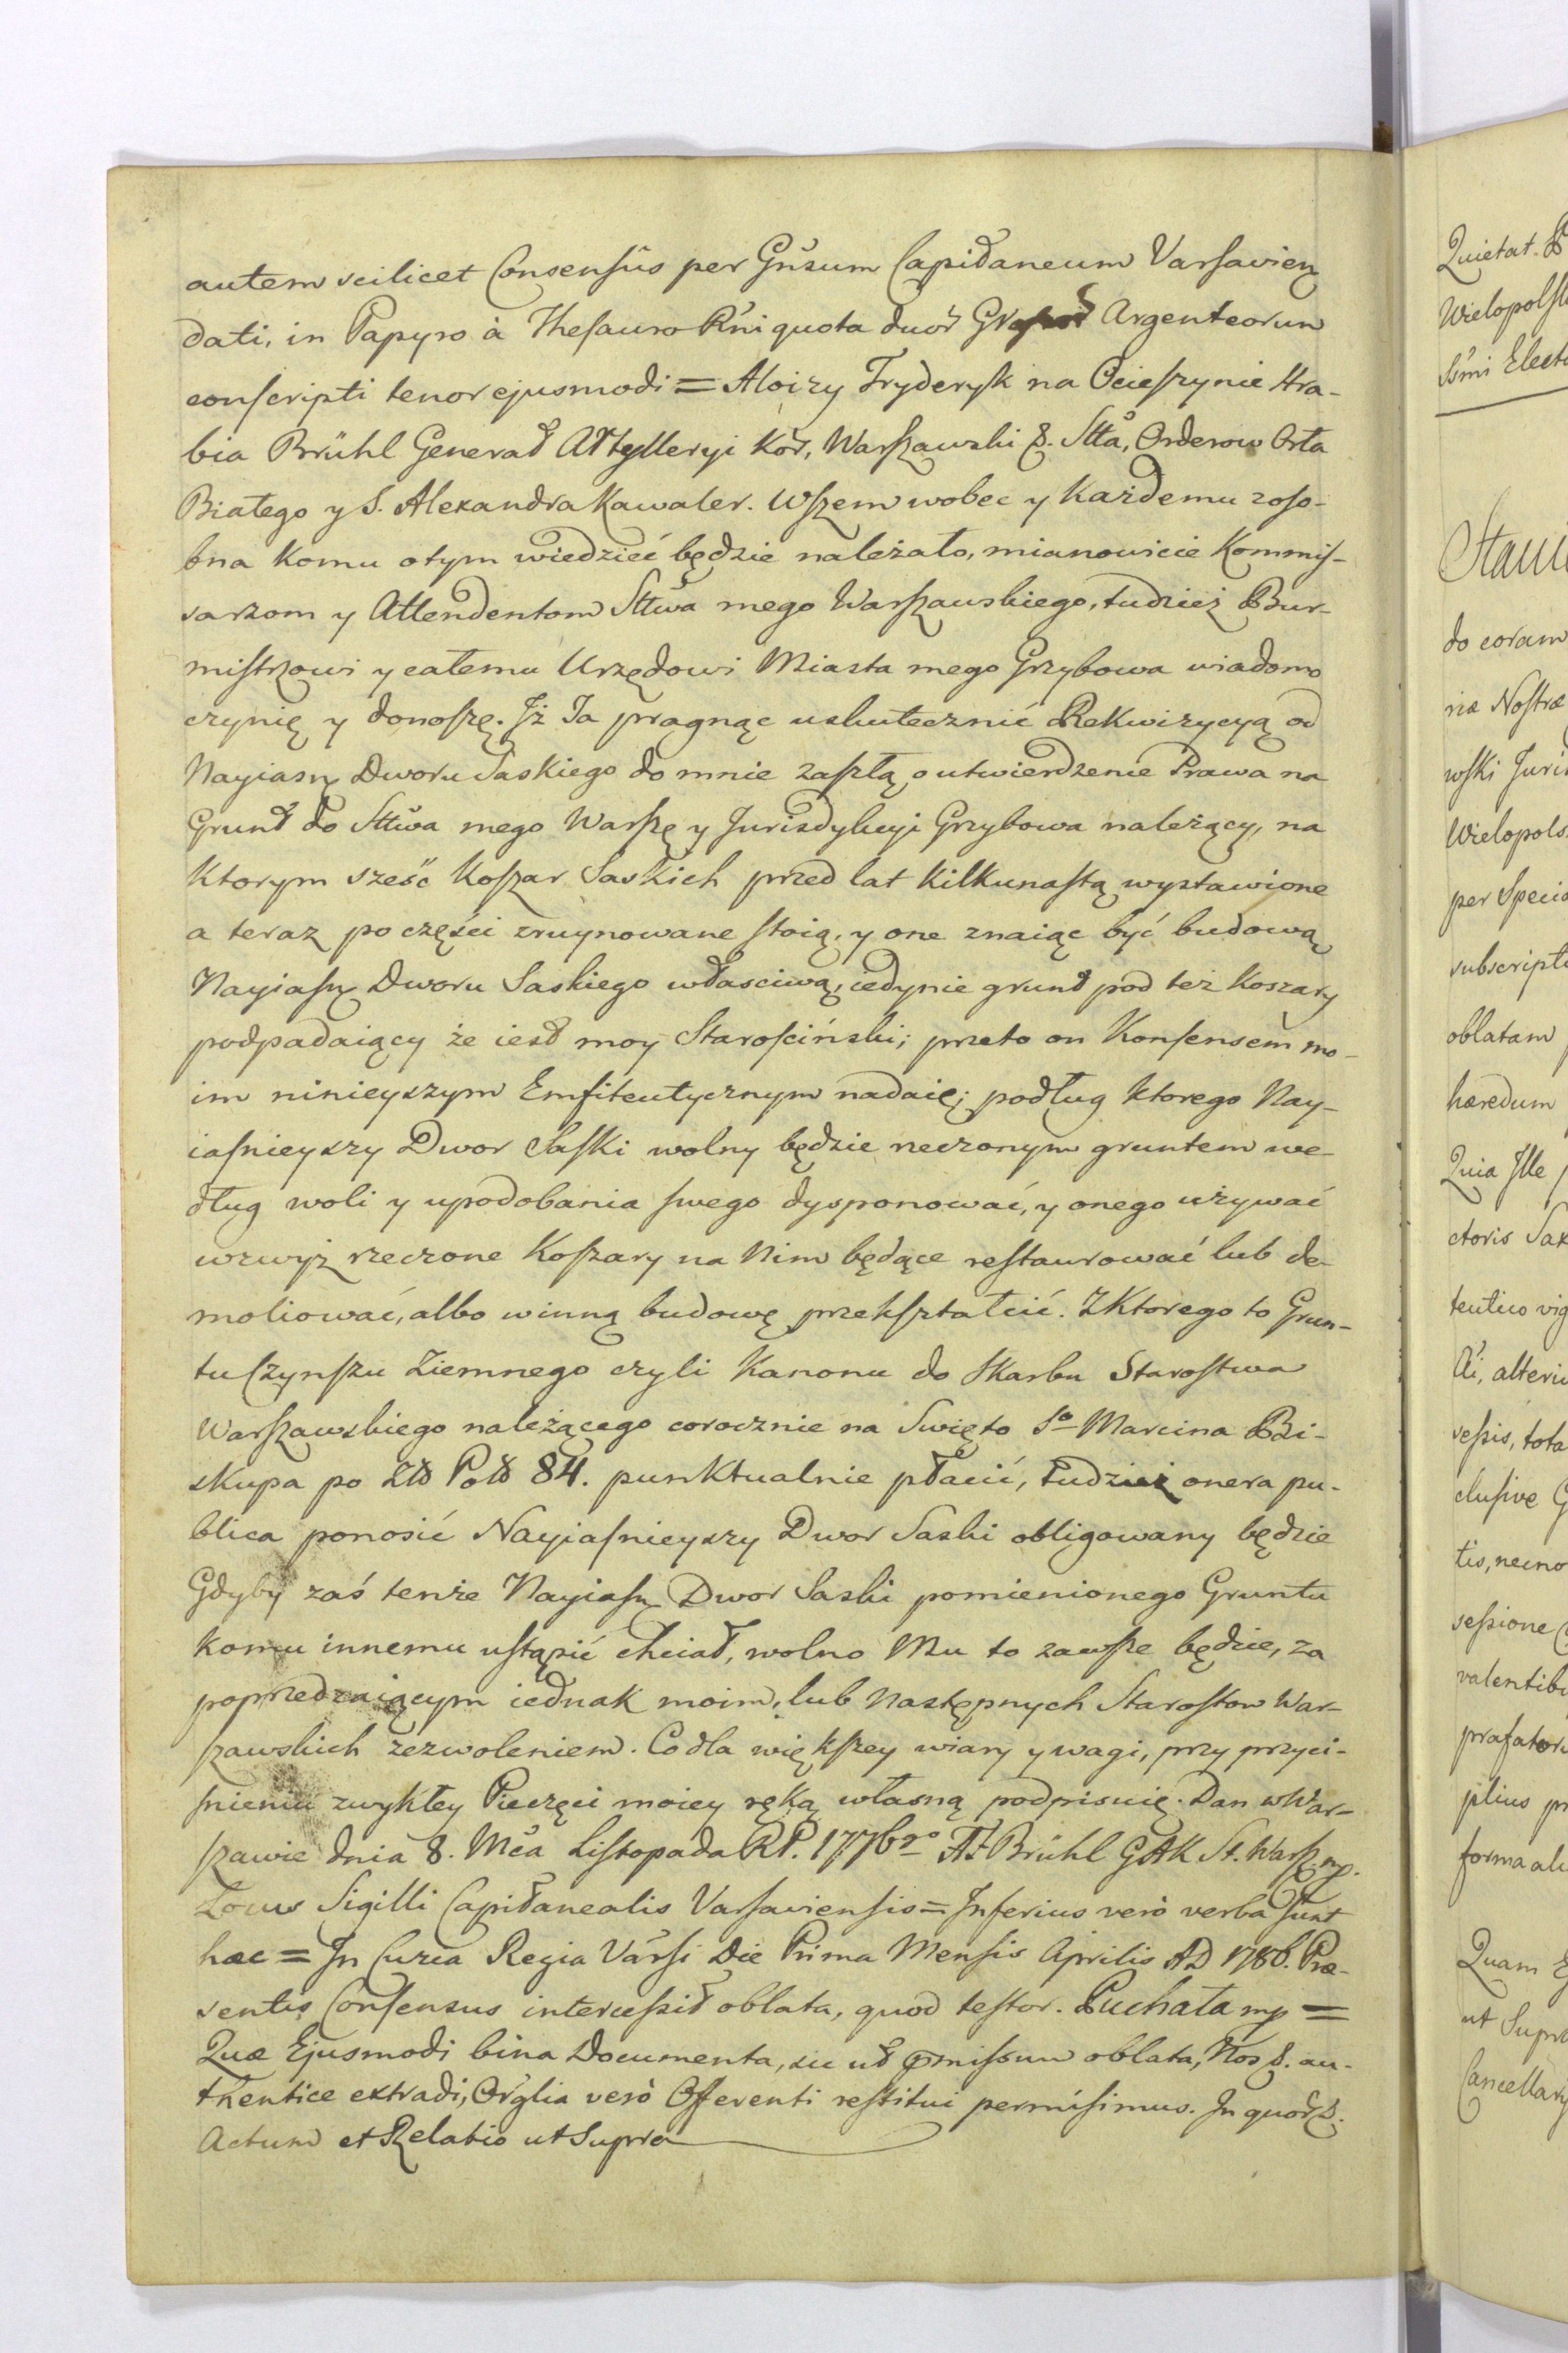 autem scilicet Consensûs per Gnŝum Capitaneum Varsavien
dati, in Papyro à Thesauro Rńi quota duor̃ Gros̃s̃ Argenteorum
conscripti tenor ejusmodi = Aloizy Fryderyk na Ocieszynie Hra-
bia Brühl Generał Artylleryi Kor̃, Warszawski &. Stta, Orderow Orła
Białego y S. Alexandra Kawaler. Wszem wobec y Każdemu zoso-
bna komu otym wiedzieć będzie należało, mianowicie Kommis-
sarzom y Attendentom Sttwa mego Warszawskiego, tudzież Bur-
mistrzowi y całemu Urzędowi Miasta mego Grzybowa wiadomo
czynię y donoszę. Jż Ja pragnąc uskutecznić Rekwizycyą od
Nayiasn Dworu Saskiego do mnie zaszłą o utwierdzenie Prawa na
Grunt do Sttwa mego Warszg y Jurisdykcyi Grzybowa należący, na
Ktorym sześć Koszar Saskich przed lat kilkunastą wystawione
a teraz po części zruynowane stoią, y one znaiąc być budową
Nayiasn Dworu Saskiego właściwą, iedynie grunt pod też Koszary
podpadaiący że iest moy Starościński; przeto on Konsensem mo-
im ninieyszym Emfiteutycznym nadaię; podług ktorego Nay-
iaśnieyszy Dwor Saski wolny będzie rzeczonym gruntem we-
dług woli y upodobania swego dysponować, y onego używać
wzwyż rzeczone Koszary na Nim będące restaurować lub de-
moliować, albo winną budowę przekształcić. Z Ktorego to Grun-
tu Czynszu Ziemnego czyli Kanonu do Skarbu Starostwa
Warszawskiego należącego corocznie na Swięto So Marcina Bi-
skupa po Złt Polt 84. punktualnie płacić, tudzież onera pu-
blica ponosić Nayiaśnieyszy Dwor Saski obligowany będzie
Gdyby zaś tenże Nayiasn Dwor Saski pomienionego Gruntu
komu innemu ustąpić chciał, wolno Mu to zawsze będzie, za
poprzedzaiącym iednak moim, lub następnych Starostow War-
szawskich zezwoleniem. Co dla większey wiary y wagi, przy przyci-
śnieniu zwykłey Pieczęci moiey ręką własną podpisuię. Dan w War-
szawie dnia 8. Mca Listopada RP. 1776go AF Brühl GAK St. Warsz. mp.
Locus Sigilli Capitanealis Varsaviensis = Inferius verò verba sunt
hæc = In Curia Regia Varsi Die Prima Mensis Aprilis AD 1786. Præ-
sentis Consensus intercessit oblata, quod testor. Puchała mp =
Quæ Ejusmodi bina Documenta, sic ut pmissum oblata, Nos &. au-
thentice extradi, Orglia verò Offerenti restitui permisimus. In quor̃ &.
Actum et Relatio ut Supra
Quietat.
Wielopolsk
Ssmi Elect
Stani
do coram
niæ Nostræ
wski Juri
Wielopols
per Specia
subscript
oblatam
hæredum
Quia Ille
ctoris Sax
teutico vig
Ai, alteri
sessis, tota
clusive G
tis, necno
sessione
valentib
præfator
plius pr
forma ali
Quam E
ut Supra
Cancellary